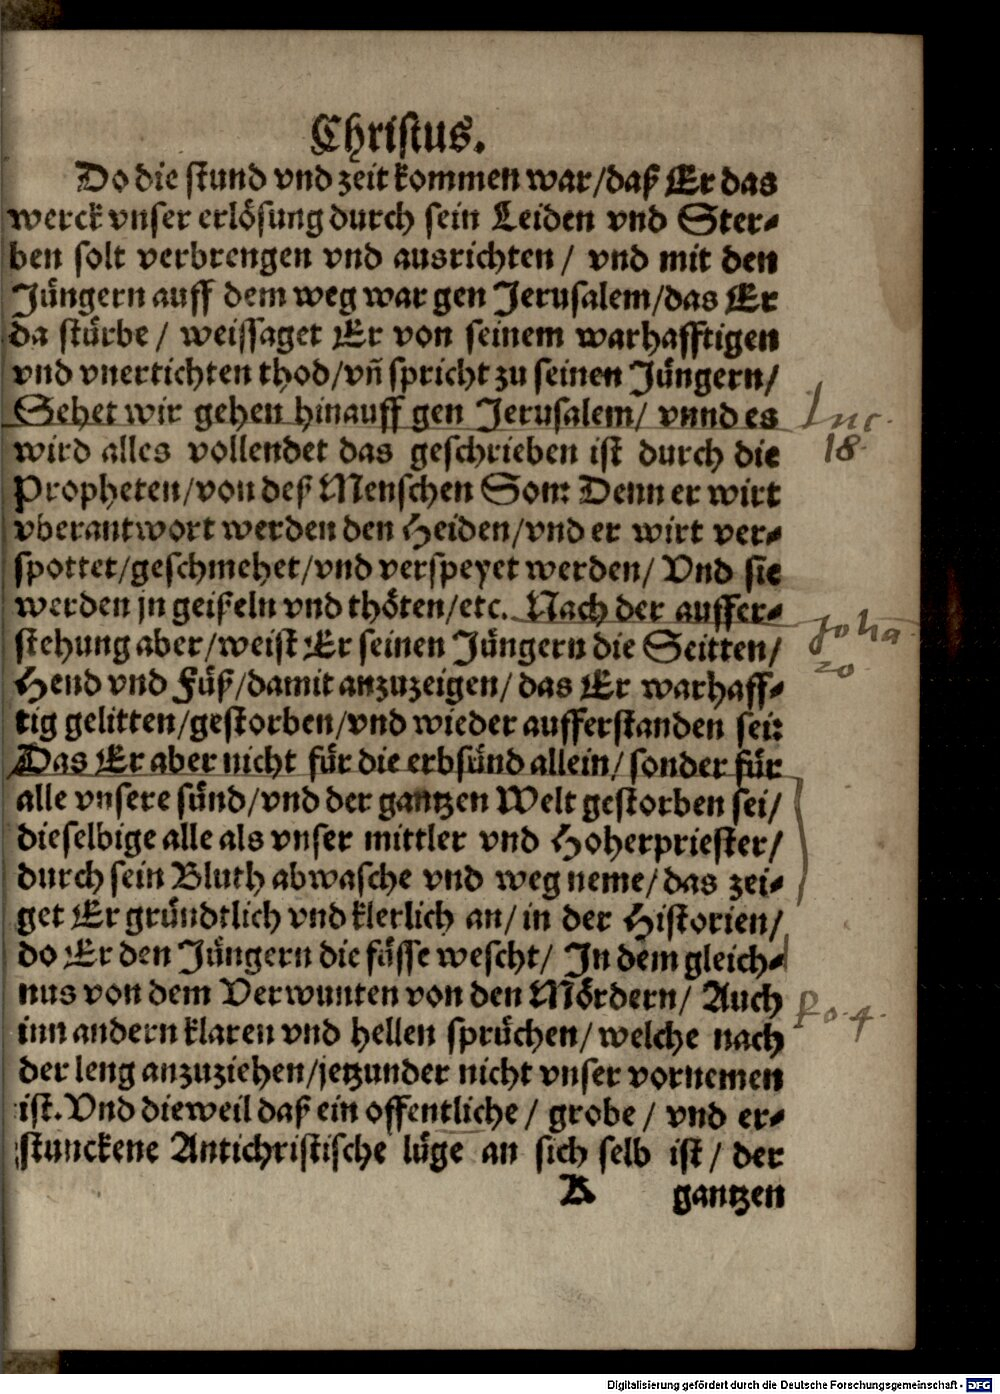 Christus.
Do die stund vnd zeit kommen war/daß Er das
werck vnser erlösung durch sein Leiden vnd Ster-
ben solt verbrengen vnd ausrichten / vnd mit den
Jüngern auff dem weg war gen Jerusalem/das Er
da stürbe / weissaget Er von seinem warhafftigen
vnd vnertichten thod/vñ spricht zu seinen Jüngern/
Sehet wir gehen hinauff gen Jerusalem/ vnnd es
Luc.
wird alles vollendet das geschrieben ist durch die
18.
Propheten/von deß Menschen Son: Denn er wirt
vberantwort werden den Heiden/vnd er wirt ver-
spottet/geschmehet/vnd verspeyet werden/ Vnd sie
werden jn geißeln vnd thöten/etc. Nach der auffer-
Joha
stehung aber/weist Er seinen Jüngern die Seitten/
20
Hend vnd Füß/damit anzuzeigen/ das Er warhaff-
tig gelitten/gestorben/vnd wieder aufferstanden sei:
Das Er aber nicht für die erbsünd allein/ sonder für
alle vnsere sünd/vnd der gantzen Welt gestorben sei/
dieselbige alle als vnser mittler vnd Hoherpriester/
durch sein Bluth abwasche vnd weg neme/ das zei-
get Er gründtlich vnd klerlich an/ in der Historien/
do Er den Jüngern die füsse wescht/ In dem gleich-
nus von dem Verwunten von den Mördern/ Auch
Ro. 4.
inn andern klaren vnd hellen sprüchen/ welche nach
der leng anzuziehen/jetzunder nicht vnser vornemen
ist. Vnd dieweil daß ein offentliche / grobe / vnd er-
stunckene Antichristische lüge an sich selb ist / der
A gantzen
Digitalisierung gefördert durch die Deutsche Forschungsgemeinschaft - DFG